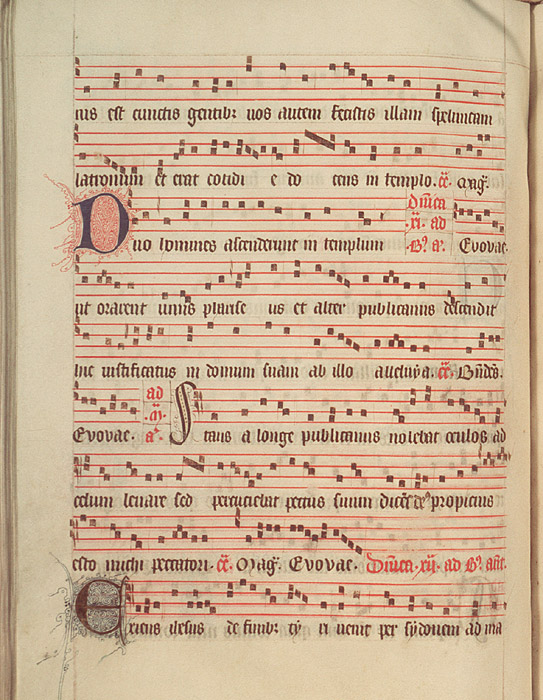 tus est cunctis gentibz uos autem fecistis illam speluncam
latronum et erat cotidi e do cens in templo. Mag̃.
Duo homines ascenderunt in templum Dñica .xi. ad .B⁹. a⁹. Evovae.
ut orarent unus pharise us et alter publicanus descendit
hic iustificatus in domum suam ab illo alleluya. Bñdc̃s.
Evovae. ad .M. a⁹. Stans a longe publicanus nolebat oculos ad
celum leuare sed percutiebat pectus suum dicẽs de⁹ propicius
esto michi peccatori. Mag̃. Evovae. Dñica .xij. ad B⁹. añt.
Exiens ihesus de finibz ty ri uenit per sydonem ad ma